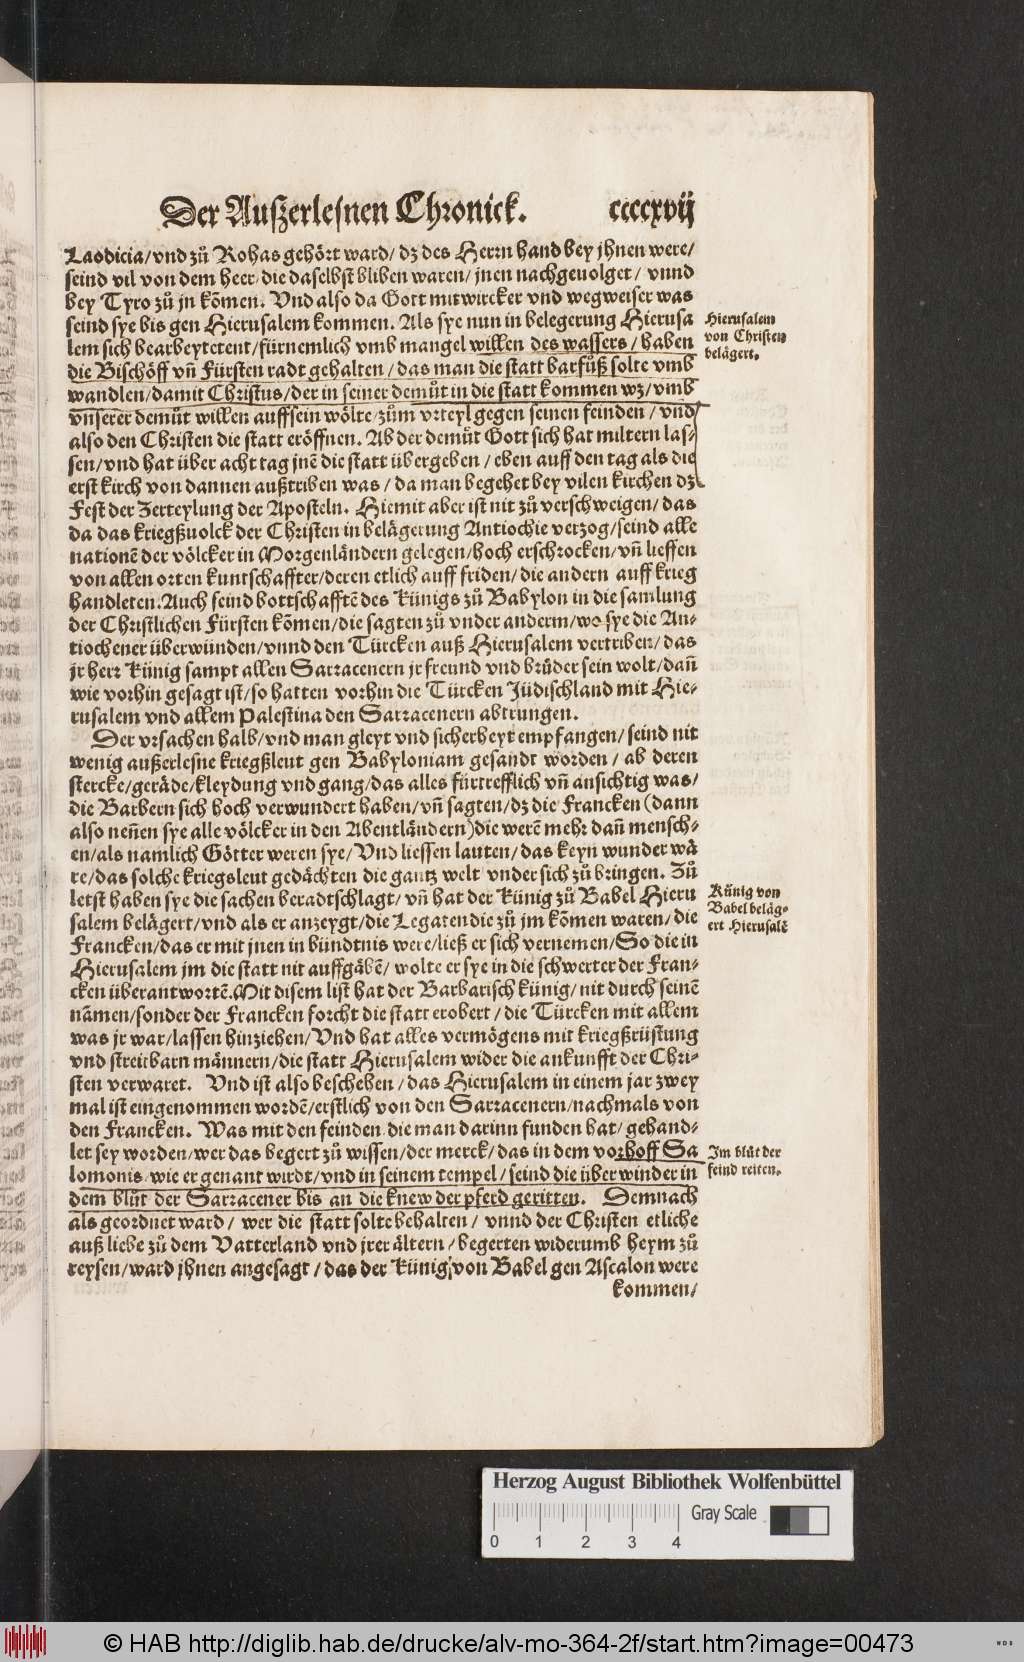 Der Außerlesnen Chronick. ccccxvij
Laodicia/vnd zů Rohas gehört ward/ dz des Herrn hand bey jhnen were/
seind vil von dem heer/die daselbst bliben waren/jnen nachgeuolget/ vnnd
bey Tyro zů jn kōmen. Vnd also da Gott mitwircker vnd wegweiser was
seind sye bis gen Hierusalem kommen. Als sye nun in belegerung Hierusa
lem sich bearbeytetent/fürnemlich vmb mangel willen des wassers/ haben
die Bischöff vñ Fürsten radt gehalten/das man die statt barfůß solte vmb
wandlen/damit Christus/der in seiner demůt in die statt kommen wz/vmb
vnserer demůt willen auffsein wölte/zům vrteyl gegen seinen feinden/ vnd
also den Christen die statt eröffnen. Ab der demůt Gott sich hat miltern las-
sen/vnd hat über acht tag jnē die statt übergeben/eben auff den tag als die
erst kirch von dannen außtriben was/ da man begehet bey vilen kirchen dz
Fest der Zerteylung der Aposteln. Hiemit aber ist nit zů verschweigen/das
da das kriegßuolck der Christen in belägerung Antiochie verzog/seind alle
nationē der völcker in Morgenländern gelegen/hoch erschrocken/vñ lieffen
von allen orten kuntschaffter/deren etlich auff friden/die andern auff krieg
handleten. Auch seind bottschafftē des Künigs zů Babylon in die samlung
der Christlichen Fürsten kōmen/die sagten zů vnder anderm/wo sye die An-
tiochener überwünden/vnnd den Türcken auß Hierusalem vertriben/das
jr herr Künig sampt allen Sarracenern jr freund vnd brůder sein wolt/dañ
wie vorhin gesagt ist/so hatten vorhin die Türcken Jüdischland mit Hie-
rusalem vnd allem Palestina den Sarracenern abtrungen.
Der vrsachen halb/vnd man gleyt vnd sicherheyt empfangen/seind nit
wenig außerlesne kriegßleut gen Babyloniam gesandt worden/ ab deren
stercke/geräde/kleydung vnd gang/das alles fürtrefflich vñ ansichtig was/
die Barbern sich hoch verwundert haben/vñ sagten/dz die Francken (dann
also neñen sye alle völcker in den Abentländern) die werē mehr dañ mensch-
en/als namlich Götter weren sye/Vnd liessen lauten/das keyn wunder wå
re/das solche kriegsleut gedächten die gantz welt vnder sich zů bringen. Zů
letst haben sye die sachen beradtschlagt/vñ hat der Künig zů Babel Hieru
salem belägert/vnd als er anzeygt/die Legaten die zů jm kōmen waren/die
Francken/das er mit jnen in bündtnis were/ließ er sich vernemen/So die in
Hierusalem jm die statt nit auffgäbē/wolte er sye in die schwerter der Fran-
cken überantwortē. Mit disem list hat der Barbarisch künig/nit durch seinē
nāmen/sonder der Francken forcht die statt erobert/die Türcken mit allem
was jr war/lassen hinziehen/Vnd hat alles vermögens mit kriegßrüstung
vnd streitbarn männern/die statt Hierusalem wider die ankunfft der Chri-
sten verwaret. Vnd ist also beschehen/das Hierusalem in einem jar zwey
mal ist eingenommen wordē/erstlich von den Sarracenern/nachmals von
den Francken. Was mit den feinden die man darinn funden hat/gehand-
let sey worden/wer das begert zů wissen/der merck/das in dem vorhoff Sa
lomonis/wie er genant wirdt/vnd in seinem tempel/seind die überwinder in
dem blůt der Sarracener bis an die knew der pferd geritten. Demnach
als geordnet ward/ wer die statt solte behalten/ vnnd der Christen etliche
auß liebe zů dem Vatterland vnd jrer ältern/begerten widerumb heym zů
reysen/ward jhnen angesagt/das der Künig von Babel gen Ascalon were
kommen/
Hierusalem
von Christen
belägert.
Künig von
Babel beläg-
ert Hierusalē
Im blůt der
feind reiten.
Herzog August Bibliothek Wolfenbüttel
Gray Scale
0 1 2 3 4
© HAB http://diglib.hab.de/drucke/alv-mo-364-2f/start.htm?image=00473